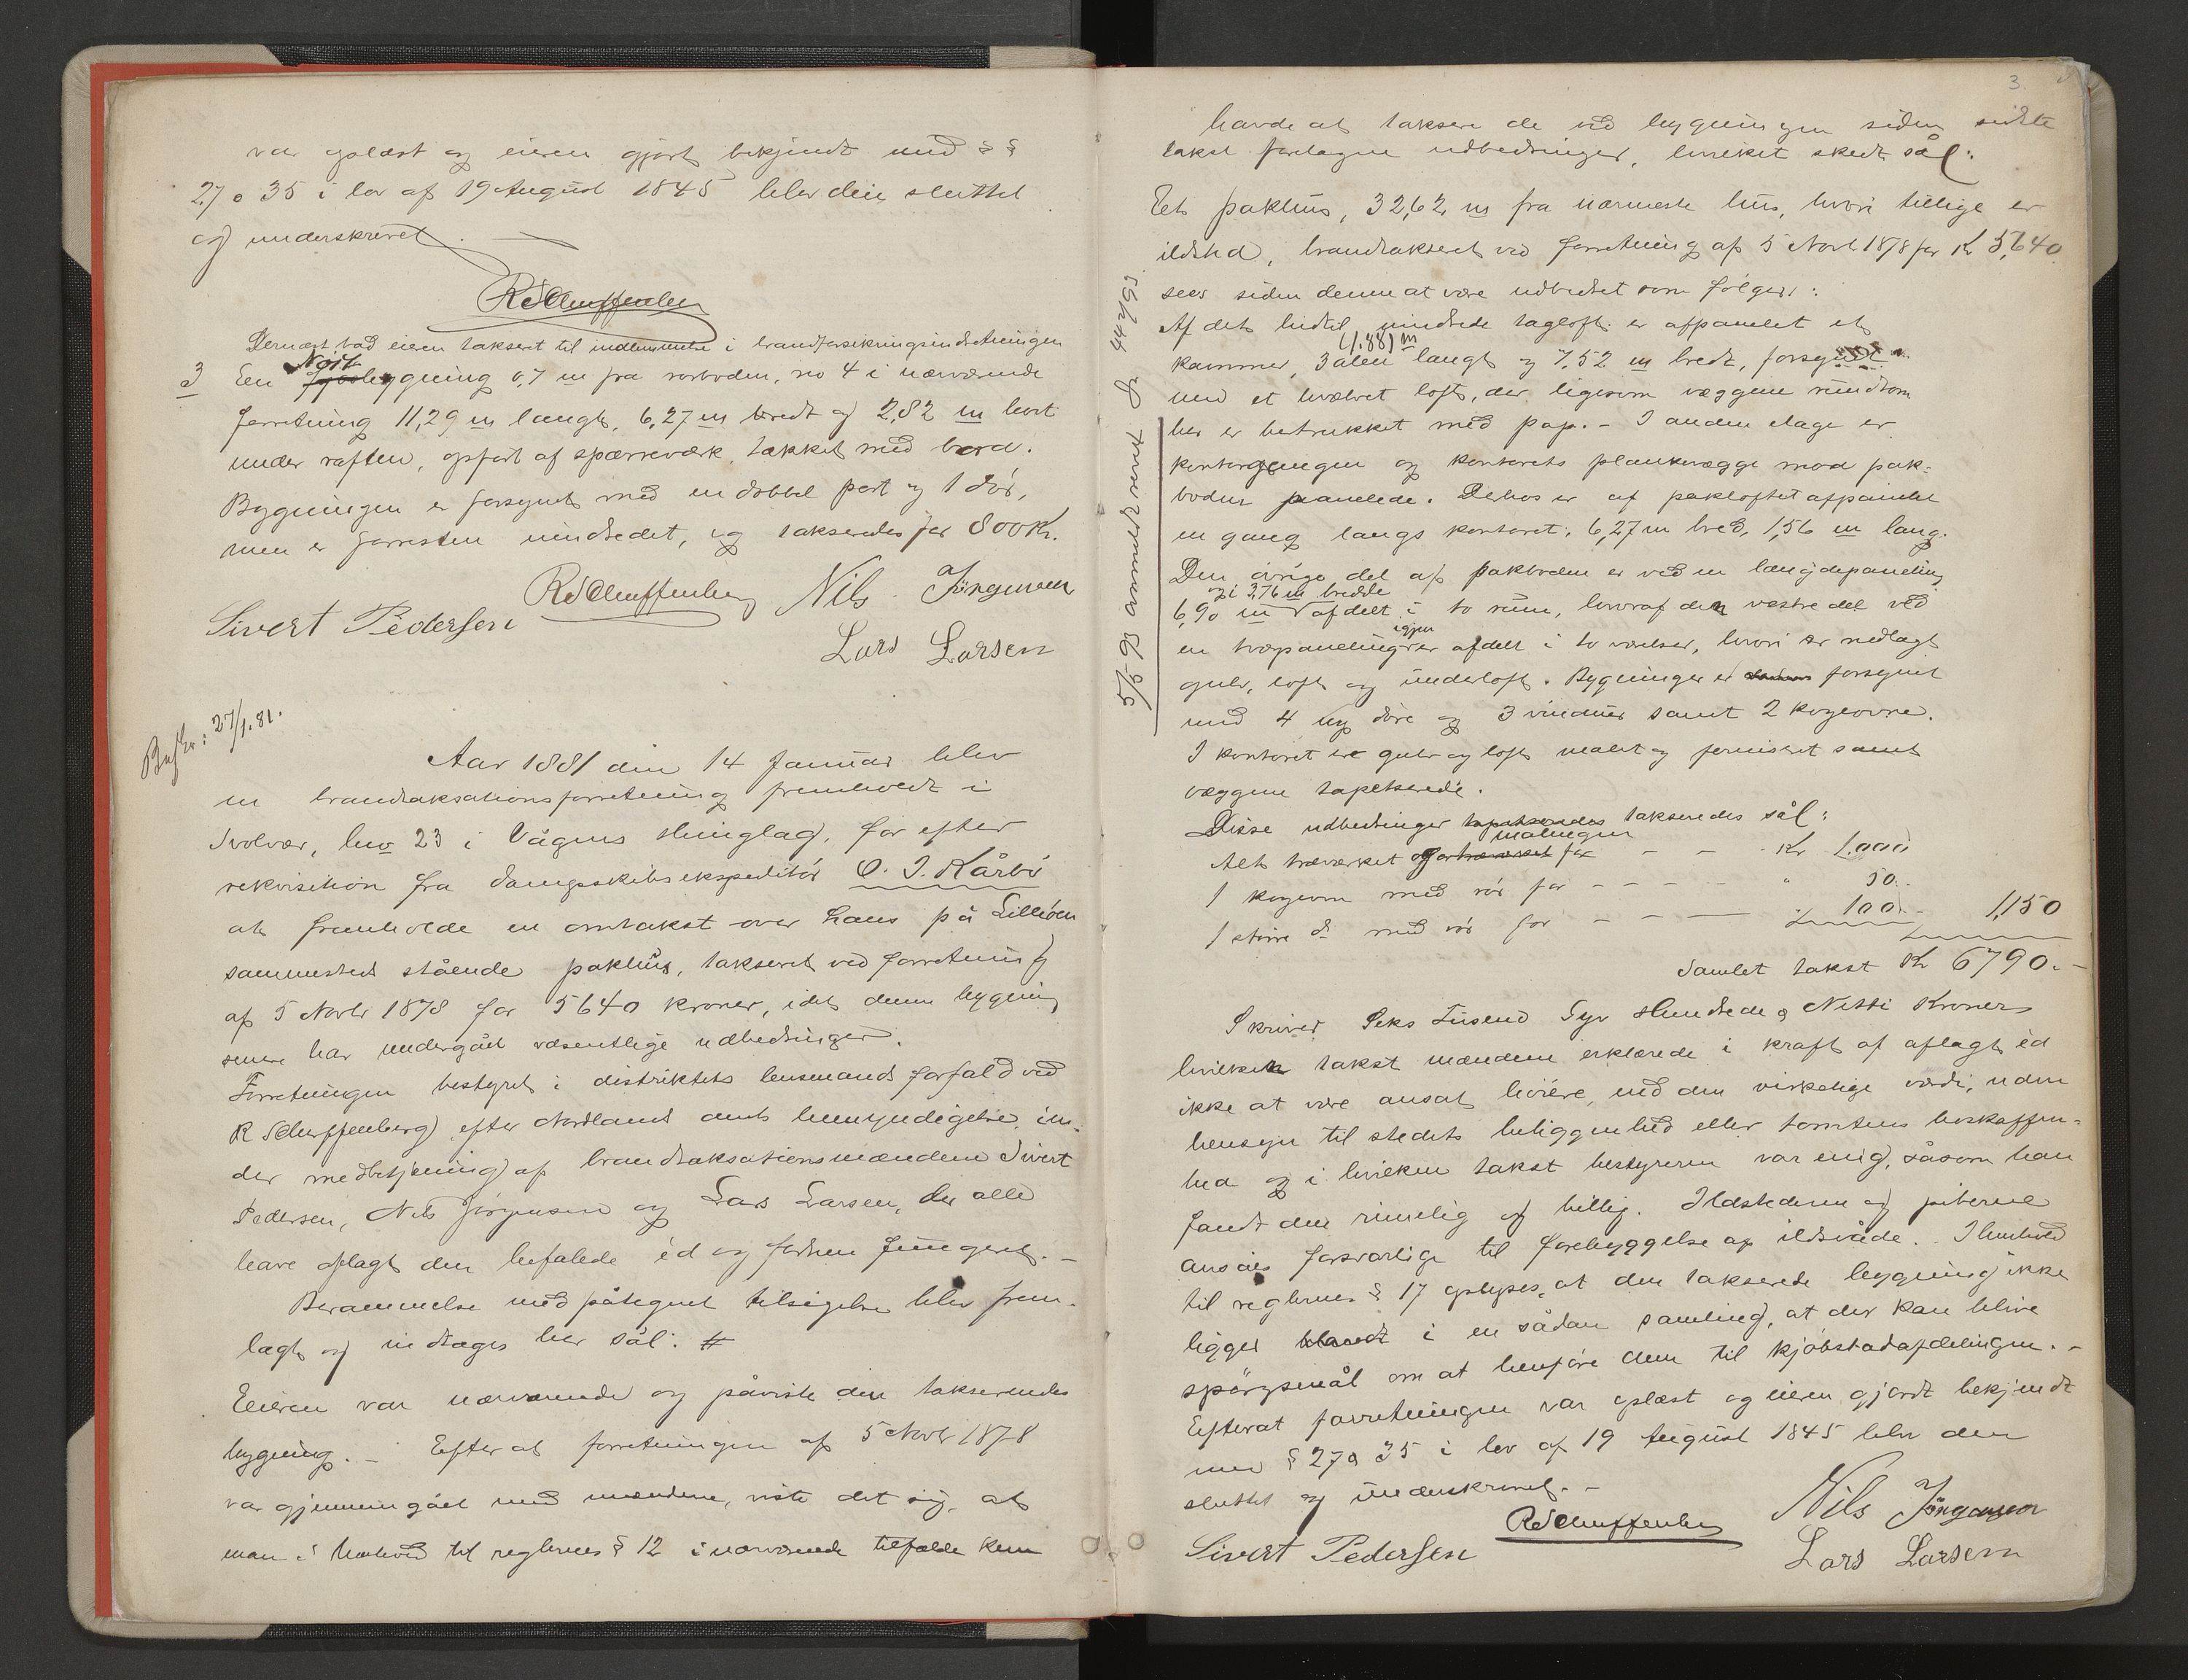 var oplæst og eieren gjort bekjendt med § §
27 o 35 i lov af 19 August 1845 blev den sluttet
og underskrevet.
RScheffenberg
Dernæst bad eieren takseret til indlemmelse i brandforsikringsindretningen
3 En Nöst bygning 0,7 m fra rorboden, no 4 i nærværende
forretning 11,29 m langt, 6,27 m bredt og 2,82 m höit
under raften, opfört af sparreværk, tækket med bord.
Bygningen er forsynet med en dobbel port og 1 dör,
men er forresten uindredet, og takseredes for 800 Kr.
RScheffenberg Nils Jörgensen
Sivert Pedersen
Lars Larsen
27/1.81.
Aar 1881 den 14 Januar blev
en brandtaksationsforretning fremholdt i
Svolvær, lno 23 i Vågens thinglag, for efter
rekvisition fra dampskibsekspeditör O. J. Kårbö
at fremholde en omtakst over hans på Lilleöen
sammesteds stående pakhus, takseret ved forretning
af 5 Novbr 1878 for 5640 kroner, idet denne bygning
senere har undergået væsentlige udbedringer.
Forretningen bestyret i distriktets lensmands forfald ved
R Scheffenberg efter Nordlands amts bemyndigelse, un-
der medbetjening af brandtaksationsmændene Sivert
Pedersen, Nils Jörgensen og Lars Larsen, der alle
have aflagt den befalede éd og forhen fungeret. –
Berammelse med påtegnet tilsigelse blev frem-
lagt og indtages her sål: #
Eieren var nærværende og påviste den takserendes
bygning. – Efter at forretningen af 5 Novbr 1878
var gjennemgået med mændene, viste det sig, at
man i henhold til reglernes § 12 i nærværende tilfælde kun
3.
havde at taksere de ved bygningen siden sidste
takst foretagne udbedringer, hvilket skede sål:
Et pakhus, 32,62 m fra nærmeste hus, hvori tillige er
ildsted, brandtakseret ved forretning af 5 Novbr 1878 for Kr 5,640
sees siden denne at være udbedret som fölger:
Af det hidtil uindrede tagloft er afpanelet et
kammer, 3 alen 1,881 m langt og 7,52 m bredt, forsynet
med et hvælvet loft, der ligesom væggene rundtom
her er betrukket med pap. – I anden etage er
kontorgangen og kontorets plankevægge mod pak-
boden panelede. Dehos er af pakloftet afpanelet
en gang langs kontoret, 6,27 m bred, 1,56 m lang.
Den övrige del af pakboden er ved en længdepaneling
6,90 m og i 3,76 m bredde afdelt i to rum, hvoraf den vestre del ved
en tværpaneling er igjen afdelt i to værelser, hvori er nedlagt
gulv, loft og underloft. Bygningen er forsynet
med 4 nye döre og 3 vinduer samt 2 kogeovne.
I kontoret er gulv og loft malet og ferniseret samt
væggene tapetserede.
Disse udbedringer tapetseredes takseredes sål:
Alt træværket og malingen for – – Kr 1.000
1 kogeovn med rör for – – – – " 50.
1 större do med rör for – – – " 100. 1,150
Samlet takst Kr 6790. –
Skriver Seks Tusend Syv Hundrede og Nitti Kroner
hvilken takst mændene erklærede i kraft af aflagt éd
ikke at være ansat höiere, end den virkelige værdi, uden
hensyn til stedets beliggenhed eller tomtens beskaffen-
hed og i hvilken takst bestyreren var enig, såsom han
fandt den rimelig og billig. Ildstederne og piberne
ansåes forsvarlige til forebyggelse af ildsvåde. I henhold
til reglernes § 17 oplyses, at den takserede bygning ikke
ligger blandt i en sådan samling, at der kan blive
spörgsmål om at henföre den til kjöbstadafdelingen. –
Efterat forretningen var oplæst og eieren gjordt bekjendt
med § 27 o 35 i lov af 19 August 1845 blev den
sluttet og underskrevet. –
RScheffenberg Nils Jörgensen
Sivert Pedersen Lars Larsen